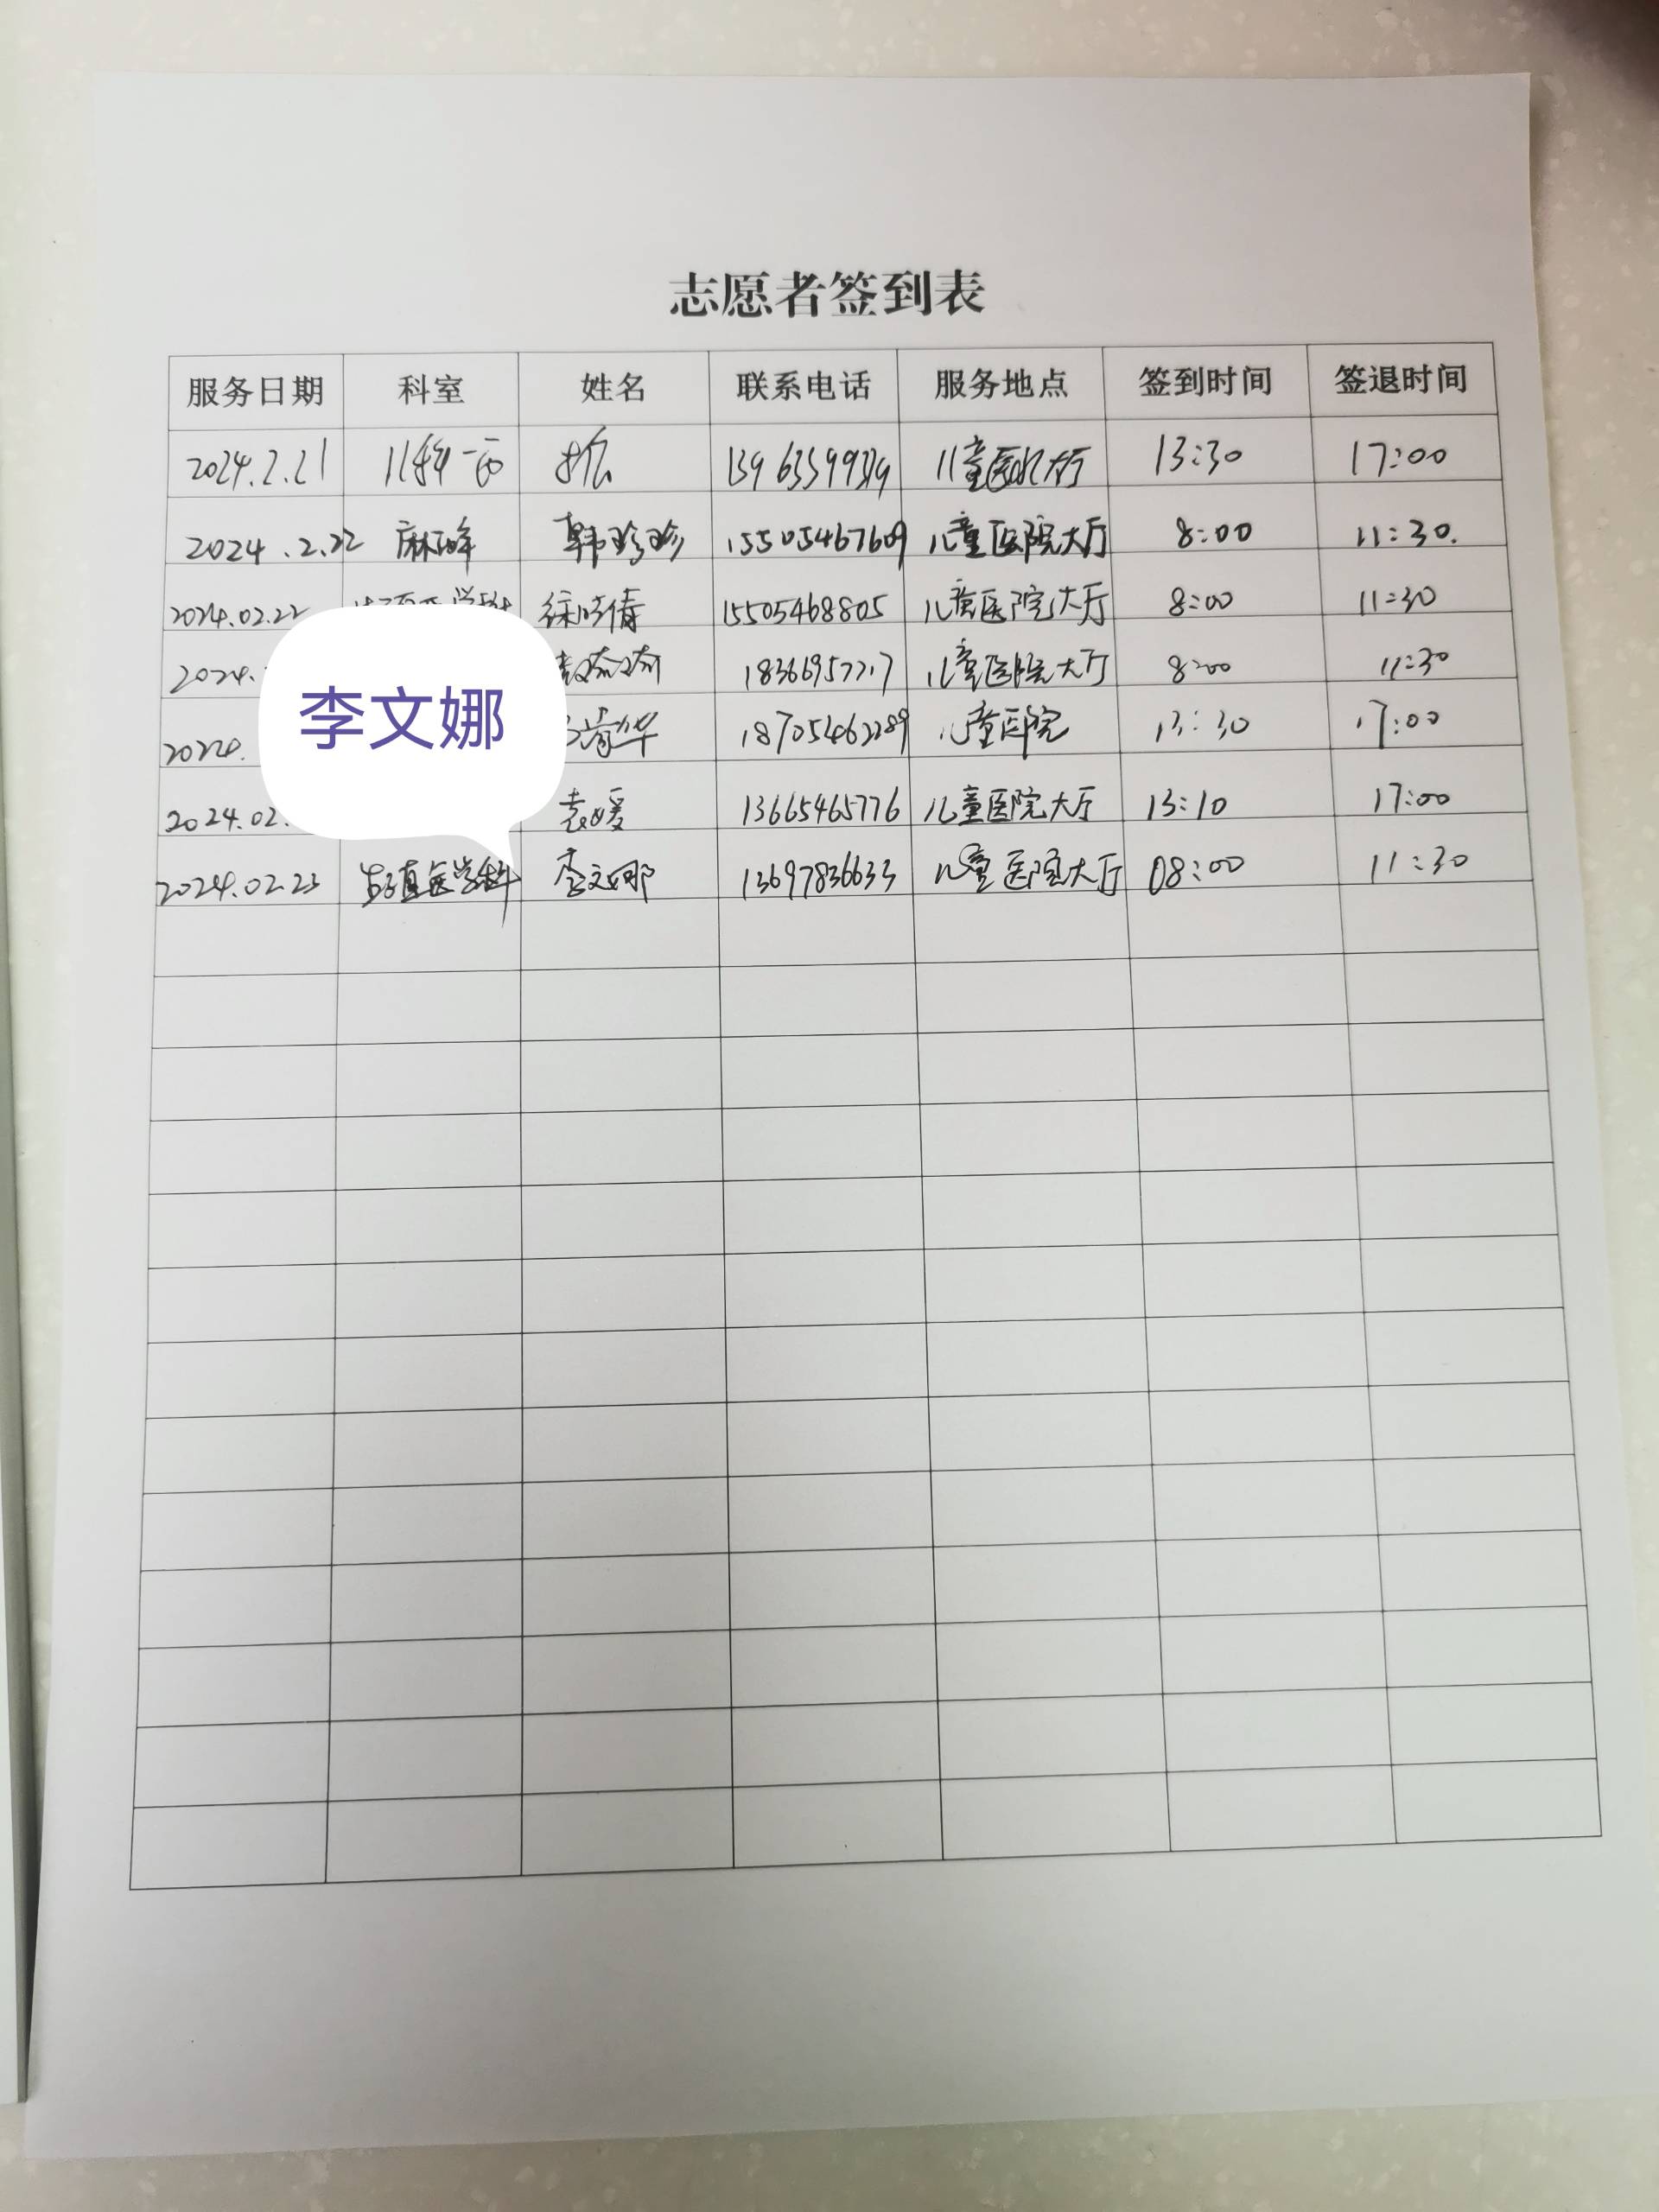 志愿者签到表
服务日期 科室 姓名 联系电话 服务地点 签到时间 签退时间
2024.2.21 儿科一 儿童医院大厅 13:30 17:00
2024.2.22 麻醉 韩珍珍 15505467609 儿童医院大厅 8:00 11:30.
2024.02.22 徐晓倩 15505468805 儿童医院大厅 8:00 11:30
2024. 儿童医院大厅 8:00 11:30
2024. 华 18705462289 儿童医院 13:30 17:00
2024.02. 袁媛 13665465776 儿童医院大厅 13:10 17:00
2024.02.23 生殖医学科 李文娜 13697836633 儿童医院大厅 08:00 11:30
李文娜